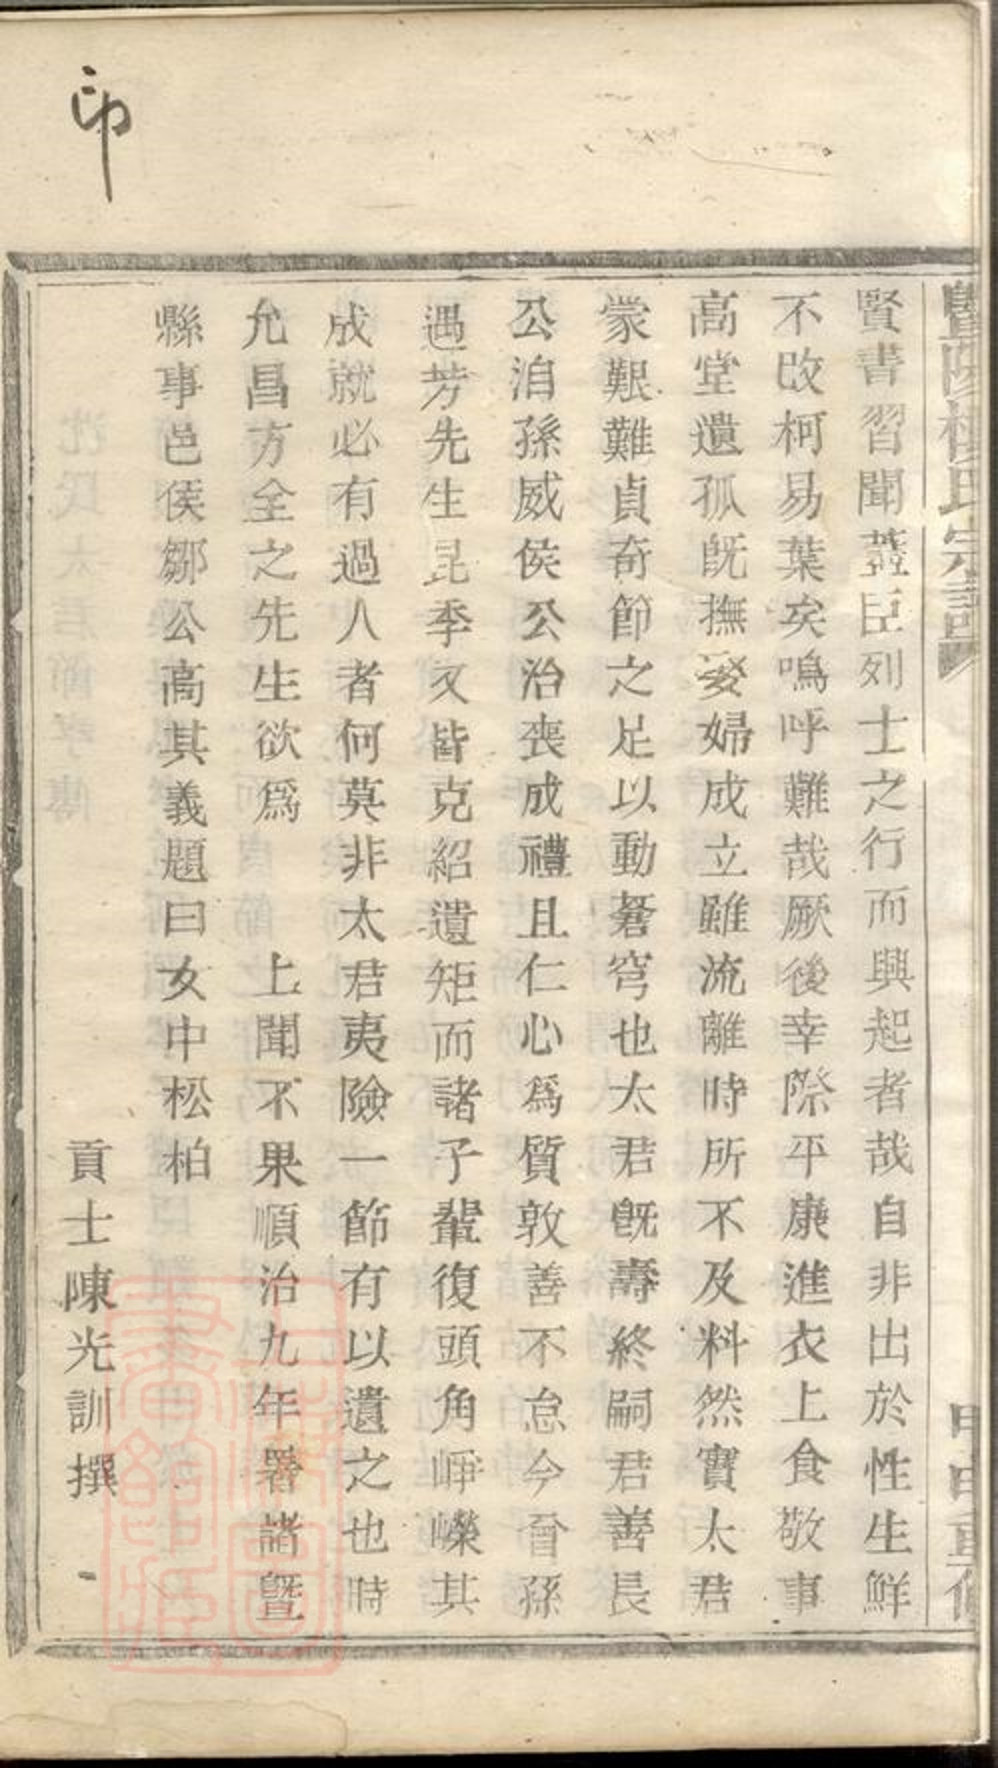 賢書習聞藎臣列士之行而興起者哉自非出於性生鮮
不改柯易葉矣嗚呼難哉厥後幸際平康進衣上食敬事
高堂遺孤旣撫嫠婦成立雖流離時所不及料然實太君
蒙艱難貞奇節之足以動蒼穹也太君旣壽終嗣君善長
公洎孫威侯公治喪成禮且仁心爲質敦善不怠今曾孫
遇芳先生昆季又皆克紹遺矩而諸子輩復頭角崢嶸其
成就必有過人者何莫非太君夷險一節有以遺之也時
允昌方全之先生欲爲 上聞不果順治九年署諸曁
縣事邑侯鄒公高其義題曰女中松柏
貢士陳光訓撰